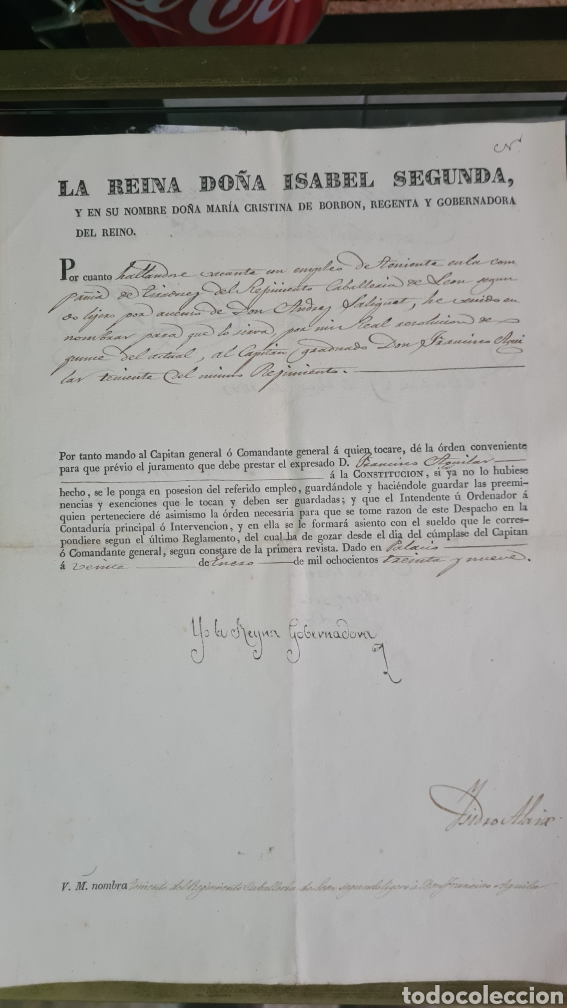 Coca-Cola
LA REINA DOÑA ISABEL SEGUNDA,
Y EN SU NOMBRE DOÑA MARÍA CRISTINA DE BORBON, REGENTA Y GOBERNADORA
DEL REINO.
Por cuanto hallandose vacante un empleo de Teniente en la com
pañia de Tiradores del Regimiento Caballeria de Leon segun
do lijero por ascenso de Don Andrez Saliquet, he venido en
nombrar para que lo sirva, por mi Real resolucion de
quince del actual, al Capitan graduado Don Francisco Agui
lar teniente del mismo Regimiento.
Por tanto mando al Capitan general ó Comandante general á quien tocare, dé la órden conveniente
para que prévio el juramento que debe prestar el expresado D. Francisco Aguilar
á la CONSTITUCION, si ya no lo hubiese
hecho, se le ponga en posesion del referido empleo, guardándole y haciéndole guardar las preemi-
nencias y exenciones que le tocan y deben ser guardadas; y que el Intendente ú Ordenador á
quien perteneciere dé asimismo la órden necesaria para que se tome razon de este Despacho en la
Contaduría principal ó Intervencion, y en ella se le formará asiento con el sueldo que le corres-
pondiere segun el último Reglamento, del cual ha de gozar desde el dia del cúmplase del Capitan
ó Comandante general, segun constare de la primera revista. Dado en Palacio
á veinte de Enero de mil ochocientos treinta y nueve.
Yo la Reyna Gobernadora
Isidro Alaix
V. M. nombra Teniente del Regimiento Caballeria de Leon segundo ligero à Don Francisco Aguilar
todocoleccion